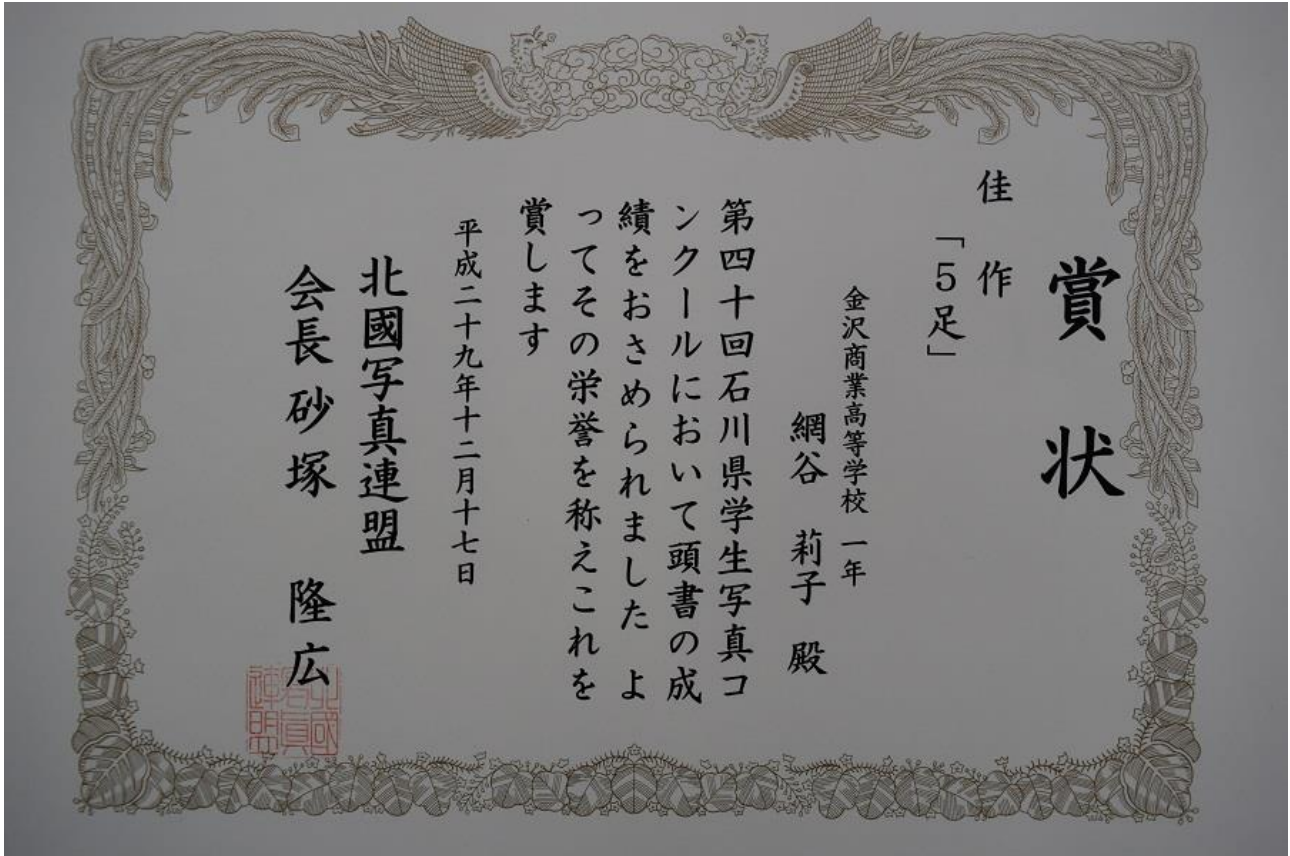 賞状
佳作
「5足」
金沢商業高等学校 一年
網谷 莉子 殿
第四十回石川県学生写真コ
ンクールにおいて頭書の成
績をおさめられました よ
ってその栄誉を称えこれを
賞します
平成二十九年十二月十七日
北國写真連盟
会長 砂塚 隆広
北國
写真
連盟